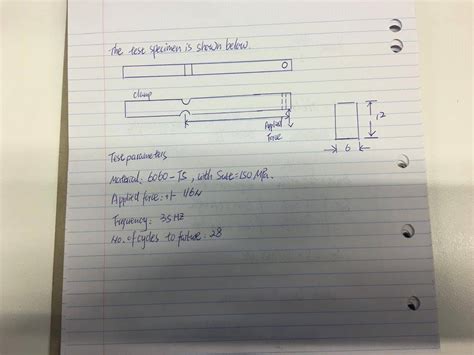 The test specimen is shown below.
clamp
Applied
Force
12
6
Test parameters
Material: 6060-T5, with Sute=150 MPa.
Applied force: +/-
Frequency: 35 HZ
No. of cycles to failure: 28